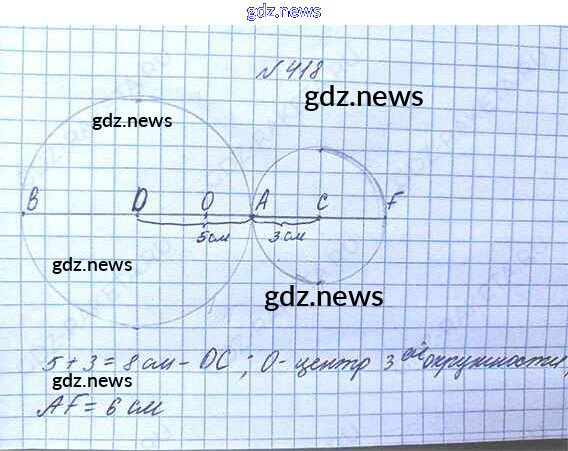 gdz.news
№ 418
gdz.news
gdz.news
B D O A C F
5 см 3 см
gdz.news
gdz.news
5 + 3 = 8 см - DC ; O - центр 3 ей окружности,
gdz.news
AF = 6 см